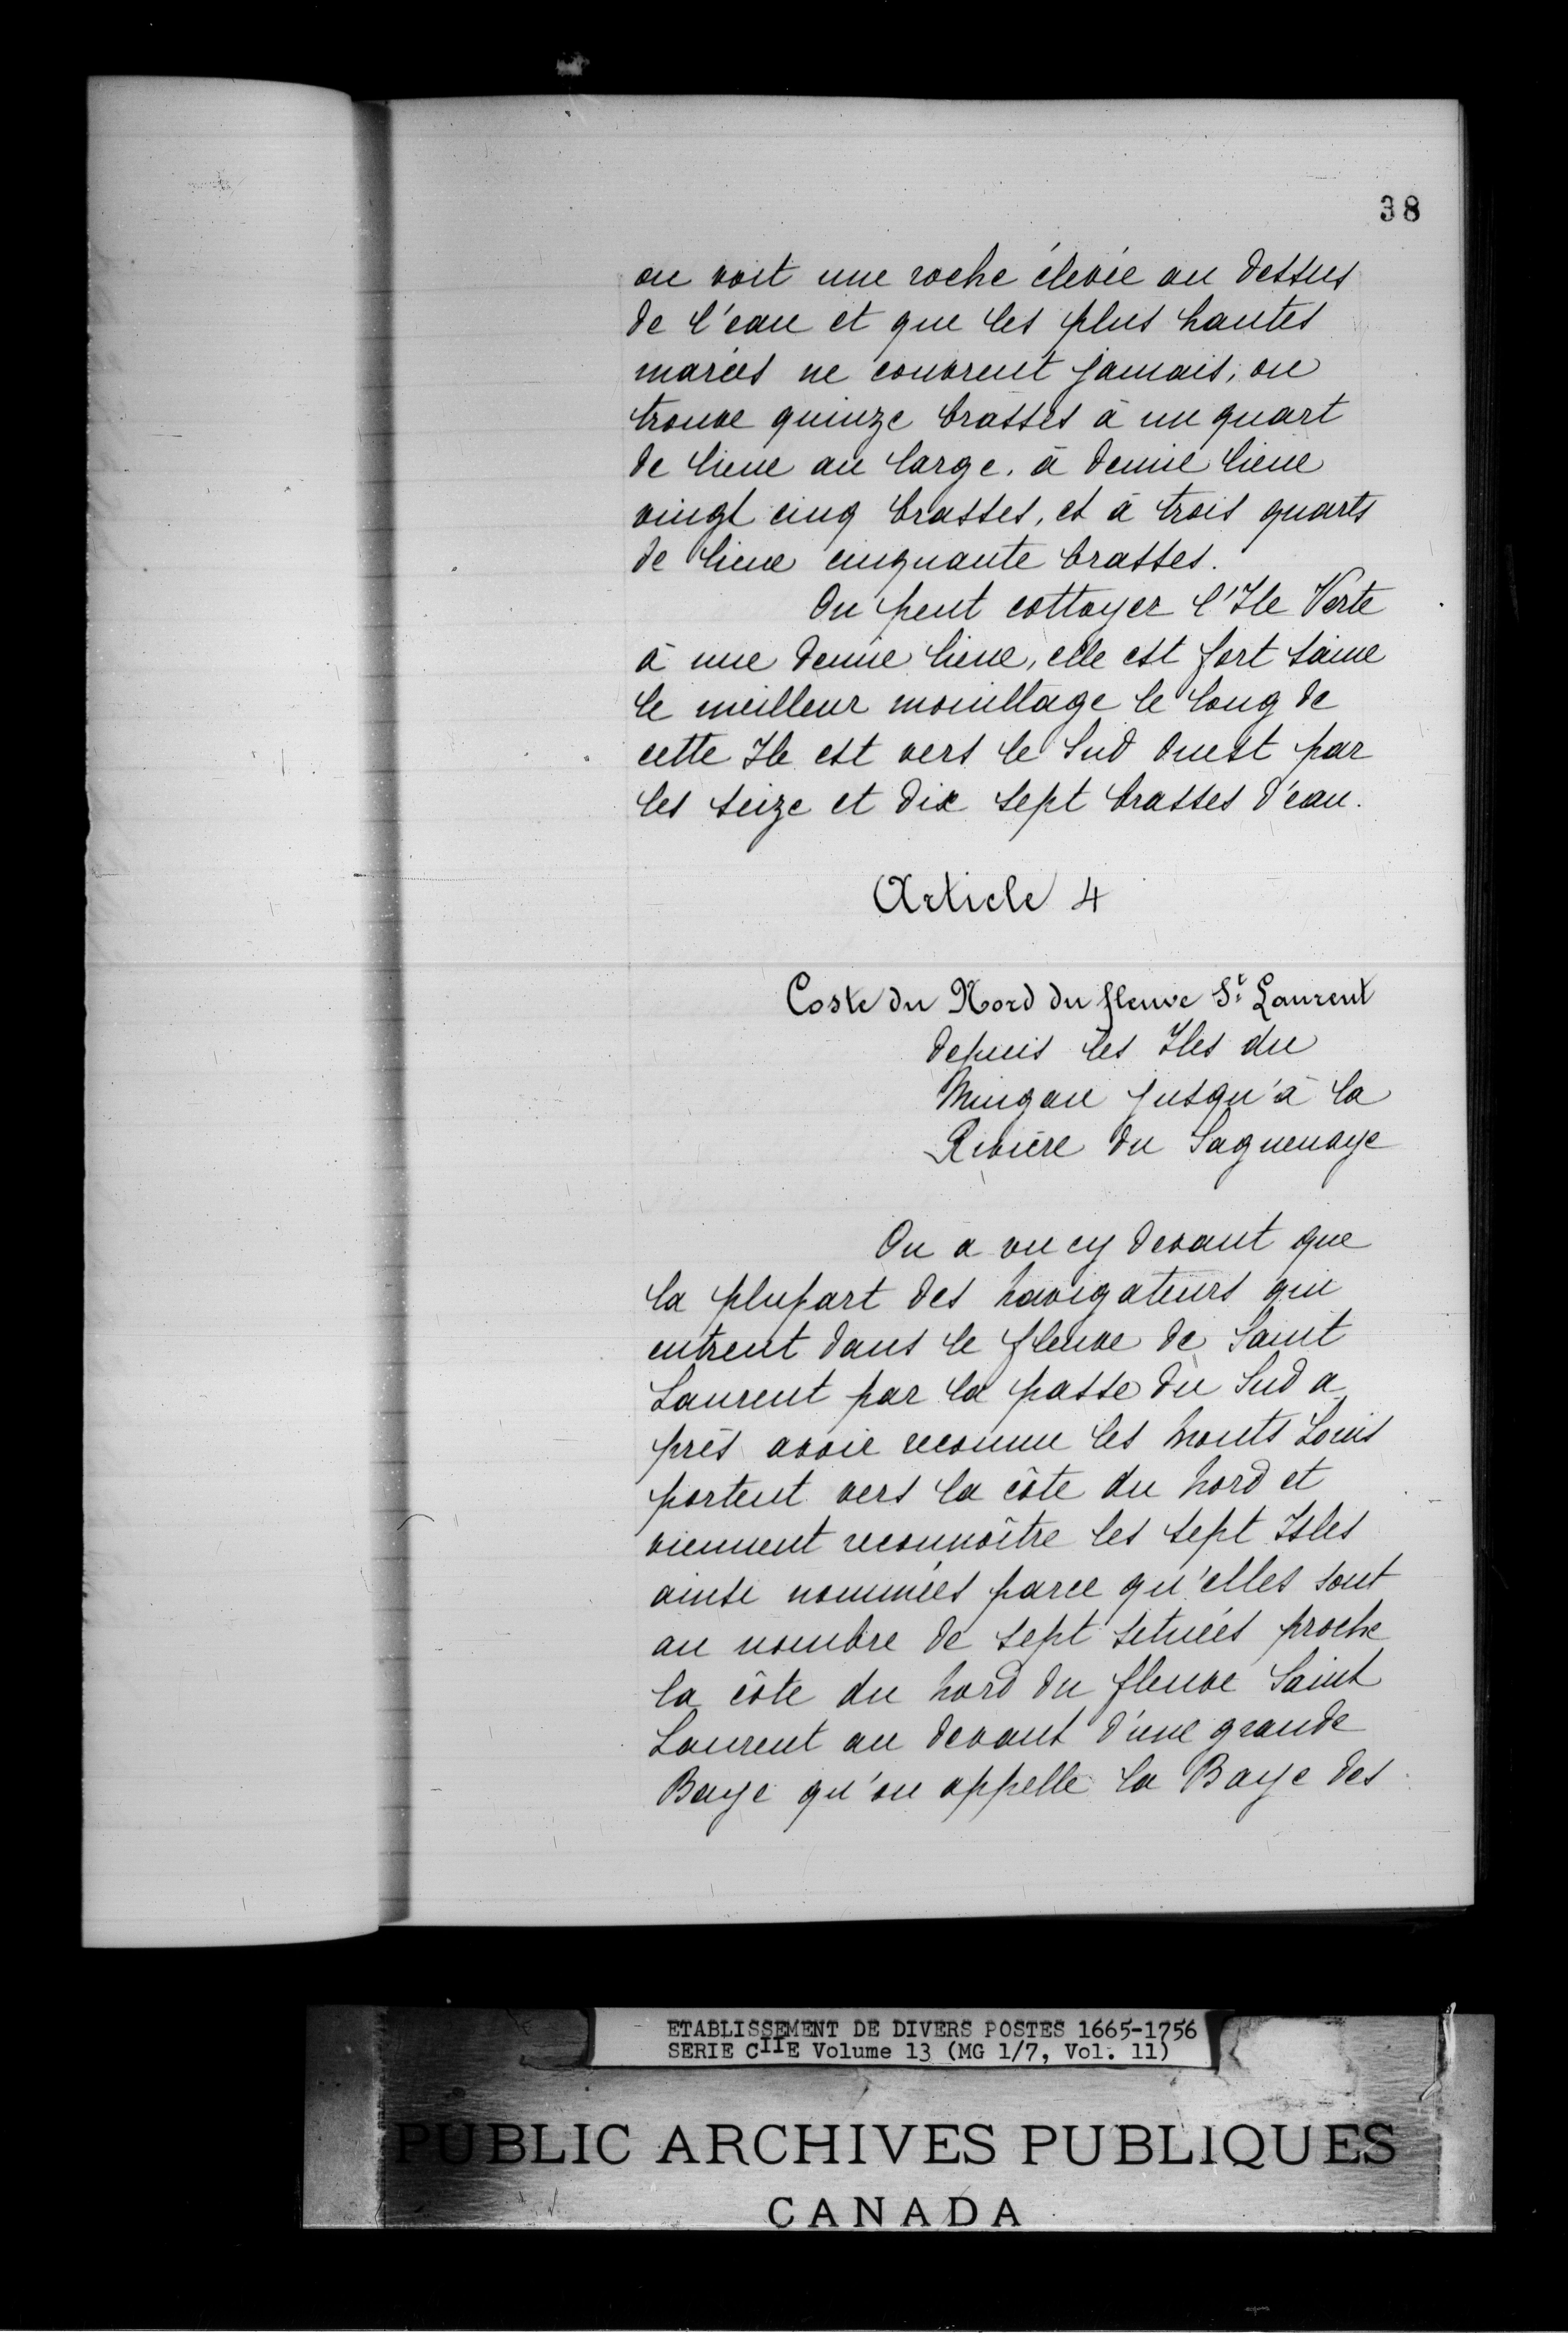 38
on voit une roche élevée au dessus
de l'eau et que les plus hautes
marées ne couvrent jamais; on
trouve quinze brasses à un quart
de lieue au large, à demie lieue
vingt cinq brasses, et à trois quarts
de lieue cinquante brasses.
On peut cottoyer l'Ile Verte
à une demie lieue, elle est fort saine
le meilleur mouillage le long de
cette Ile est vers le Sud Ouest par
les seize et dix sept brasses d'eau.
Article 4
Coste du Nord du fleuve St Laurent
depuis les Iles du
Mingan jusqu'à la
Rivière du Saguenaye
On a vu cy devant que
la plupart des navigateurs qui
entrent dans le fleuve de Saint
Laurent par la passe du Sud a
près avoir reconnu les Monts Louis
portent vers la côte du Nord et
viennent reconnoître les Sept Isles
ainsi nommées parce qu'elles sont
au nombre de sept situées proche
la côte du Nord du fleuve Saint
Laurent au devant d'une grande
Baye qu'on appelle la Baye des
ETABLISSEMENT DE DIVERS POSTES 1665-1756
SERIE CIIE Volume 13 (MG 1/7, Vol. 11)
PUBLIC ARCHIVES PUBLIQUES
CANADA